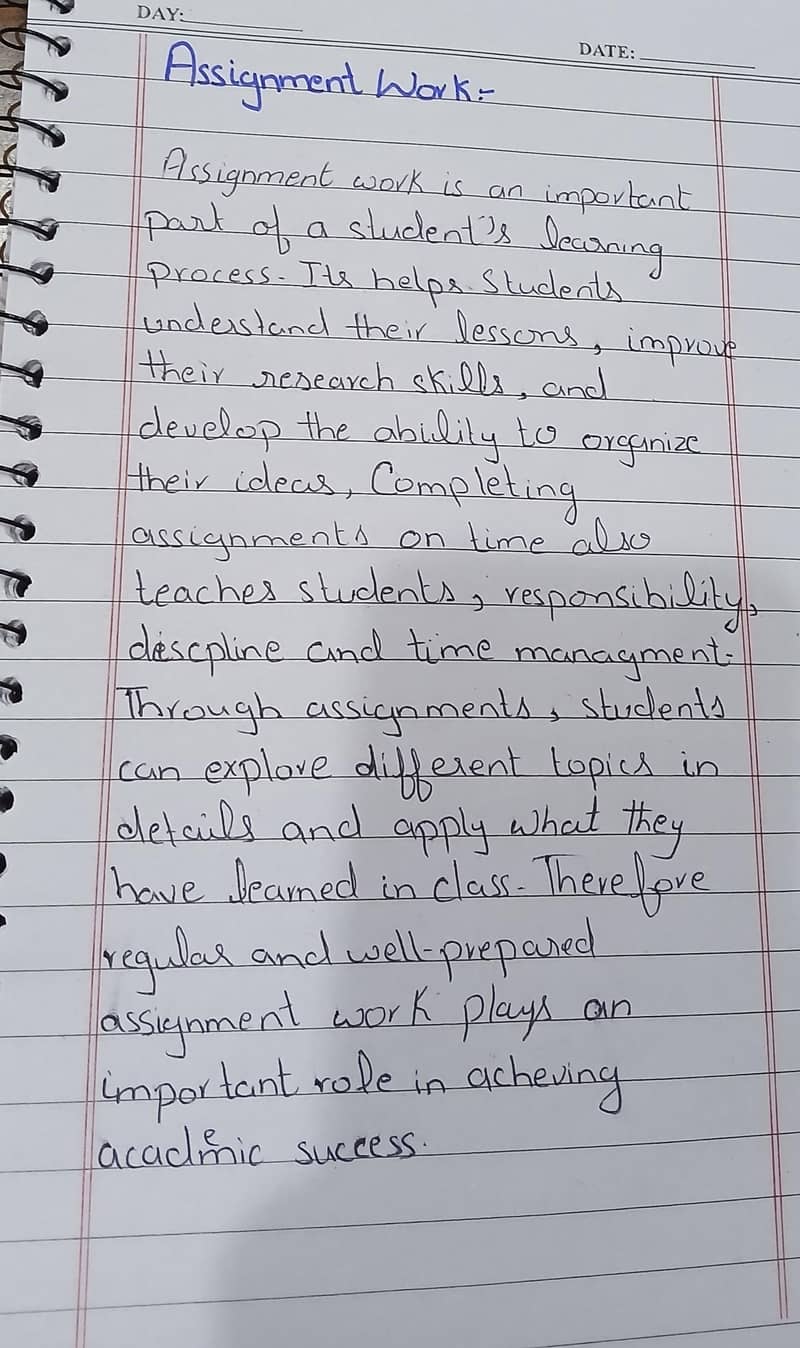 DAY:
DATE:
Assignment Work:-
Assignment work is an important
part of a student's learning
process. Its helps students
understand their lessons, improve
their research skills, and
develop the ability to organize
their ideas, Completing
assignments on time also
teaches students, responsibility,
descpline and time managment.
Through assignments, students
can explore different topics in
details and apply what they
have learned in class. Therefore
regular and well-prepared
assignment work plays an
important role in acheving
academic success.